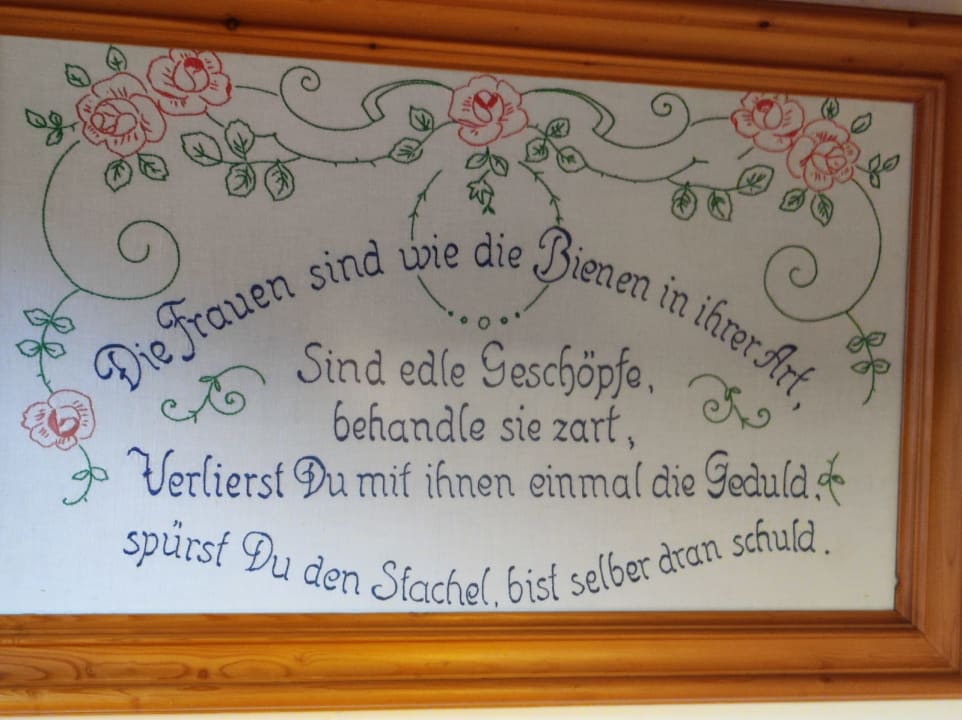 Die Frauen sind wie die Bienen in ihrer Art,
Sind edle Geschöpfe,
behandle sie zart,
Verlierst Du mit ihnen einmal die Geduld,
spürst Du den Stachel, bist selber dran schuld.